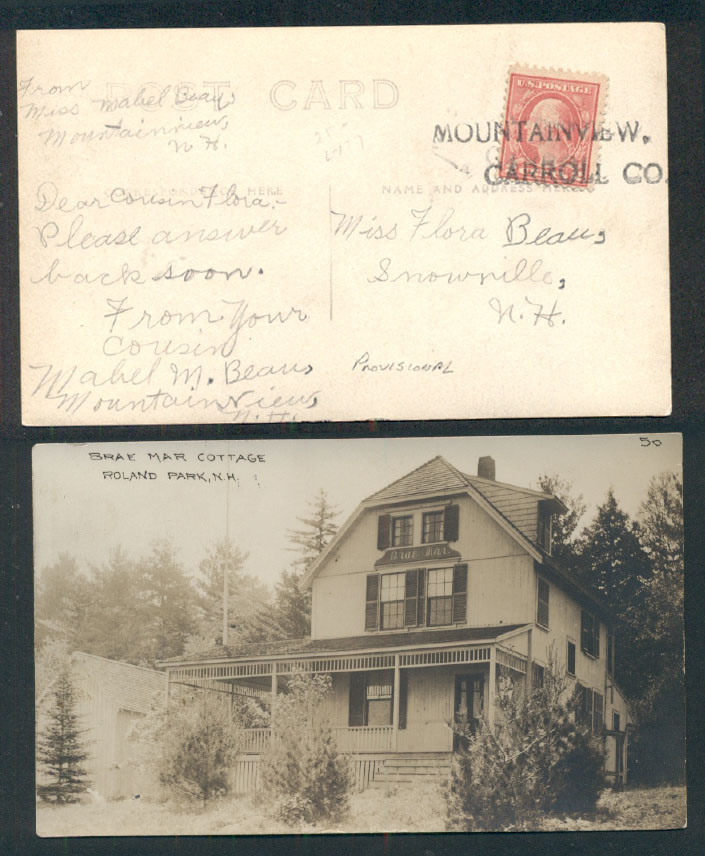 POST CARD
From
Miss Mabel Beau,
Mountainview,
N.H.
U.S. POSTAGE
MOUNTAINVIEW,
CARROLL CO.
CORRESPONDENCE HERE
NAME AND ADDRESS HERE
Dear Cousin Flora,-
Please answer
back soon.
From Your
Cousin
Mabel M. Beau,
Mountainview,
N.H.
Miss Flora Beau,
Snowville,
N.H.
PROVISIONAL
BRAE MAR COTTAGE
ROLAND PARK, N.H.
50
Brae Mar